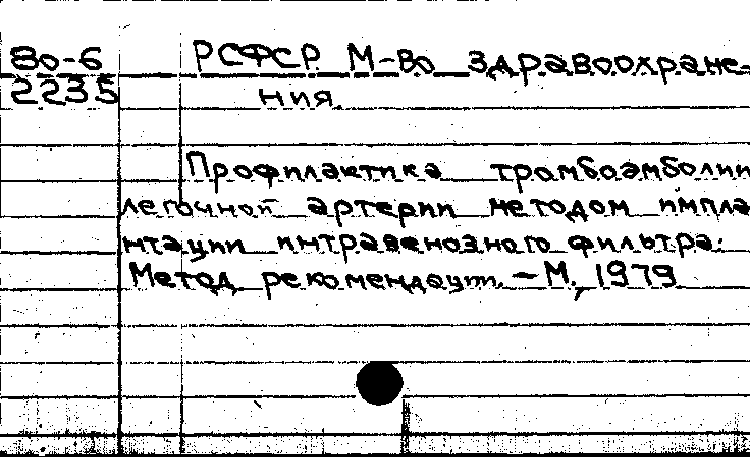 80-6 РСФСР М-во здравоохране-
2235 ния.
Профилактика тромбоэмболии
легочной артерии методом импла
нтации интравенозного фильтра:
Метод. рекомендации. – М., 1979